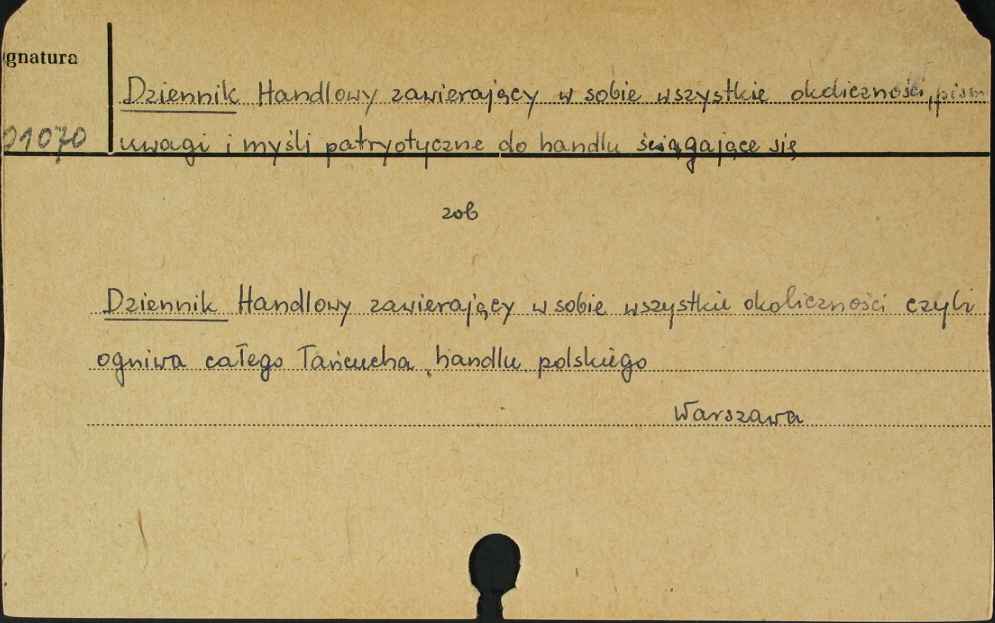 gnatura
Dziennik Handlowy zawierający w sobie wszystkie okoliczności, pism
01070 uwagi i myśli patryotyczne do handlu ściągające się
zob
Dziennik Handlowy zawierający w sobie wszystkie okoliczności czyli
ogniwa całego łańcucha handlu polskiego
Warszawa